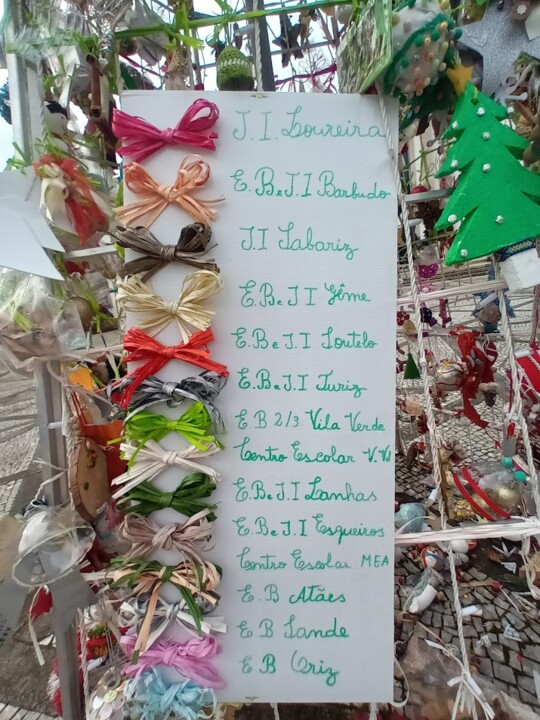 J. I. Loureira
E. B e J. I Barbudo
J.I Sabariz
E. B e J I Gême
E. B e J. I Loutelo
E. B e J. I Turiz
E B 2/3 Vila Verde
Centro Escolar V.Vd
E. B e J. I Lanhas
E. B e J. I Esqueiros
Centro Escolar MEA
E. B Atães
E B Lande
E B Oriz